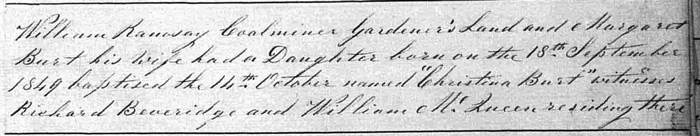 William Ramsay Coalminer Gardener's Land and Margaret
Burt his wife had a Daughter born on the 18th September
1849 baptised the 14th October named "Christina Burt" witnesses
Richard Beveridge and William McQueen residing there